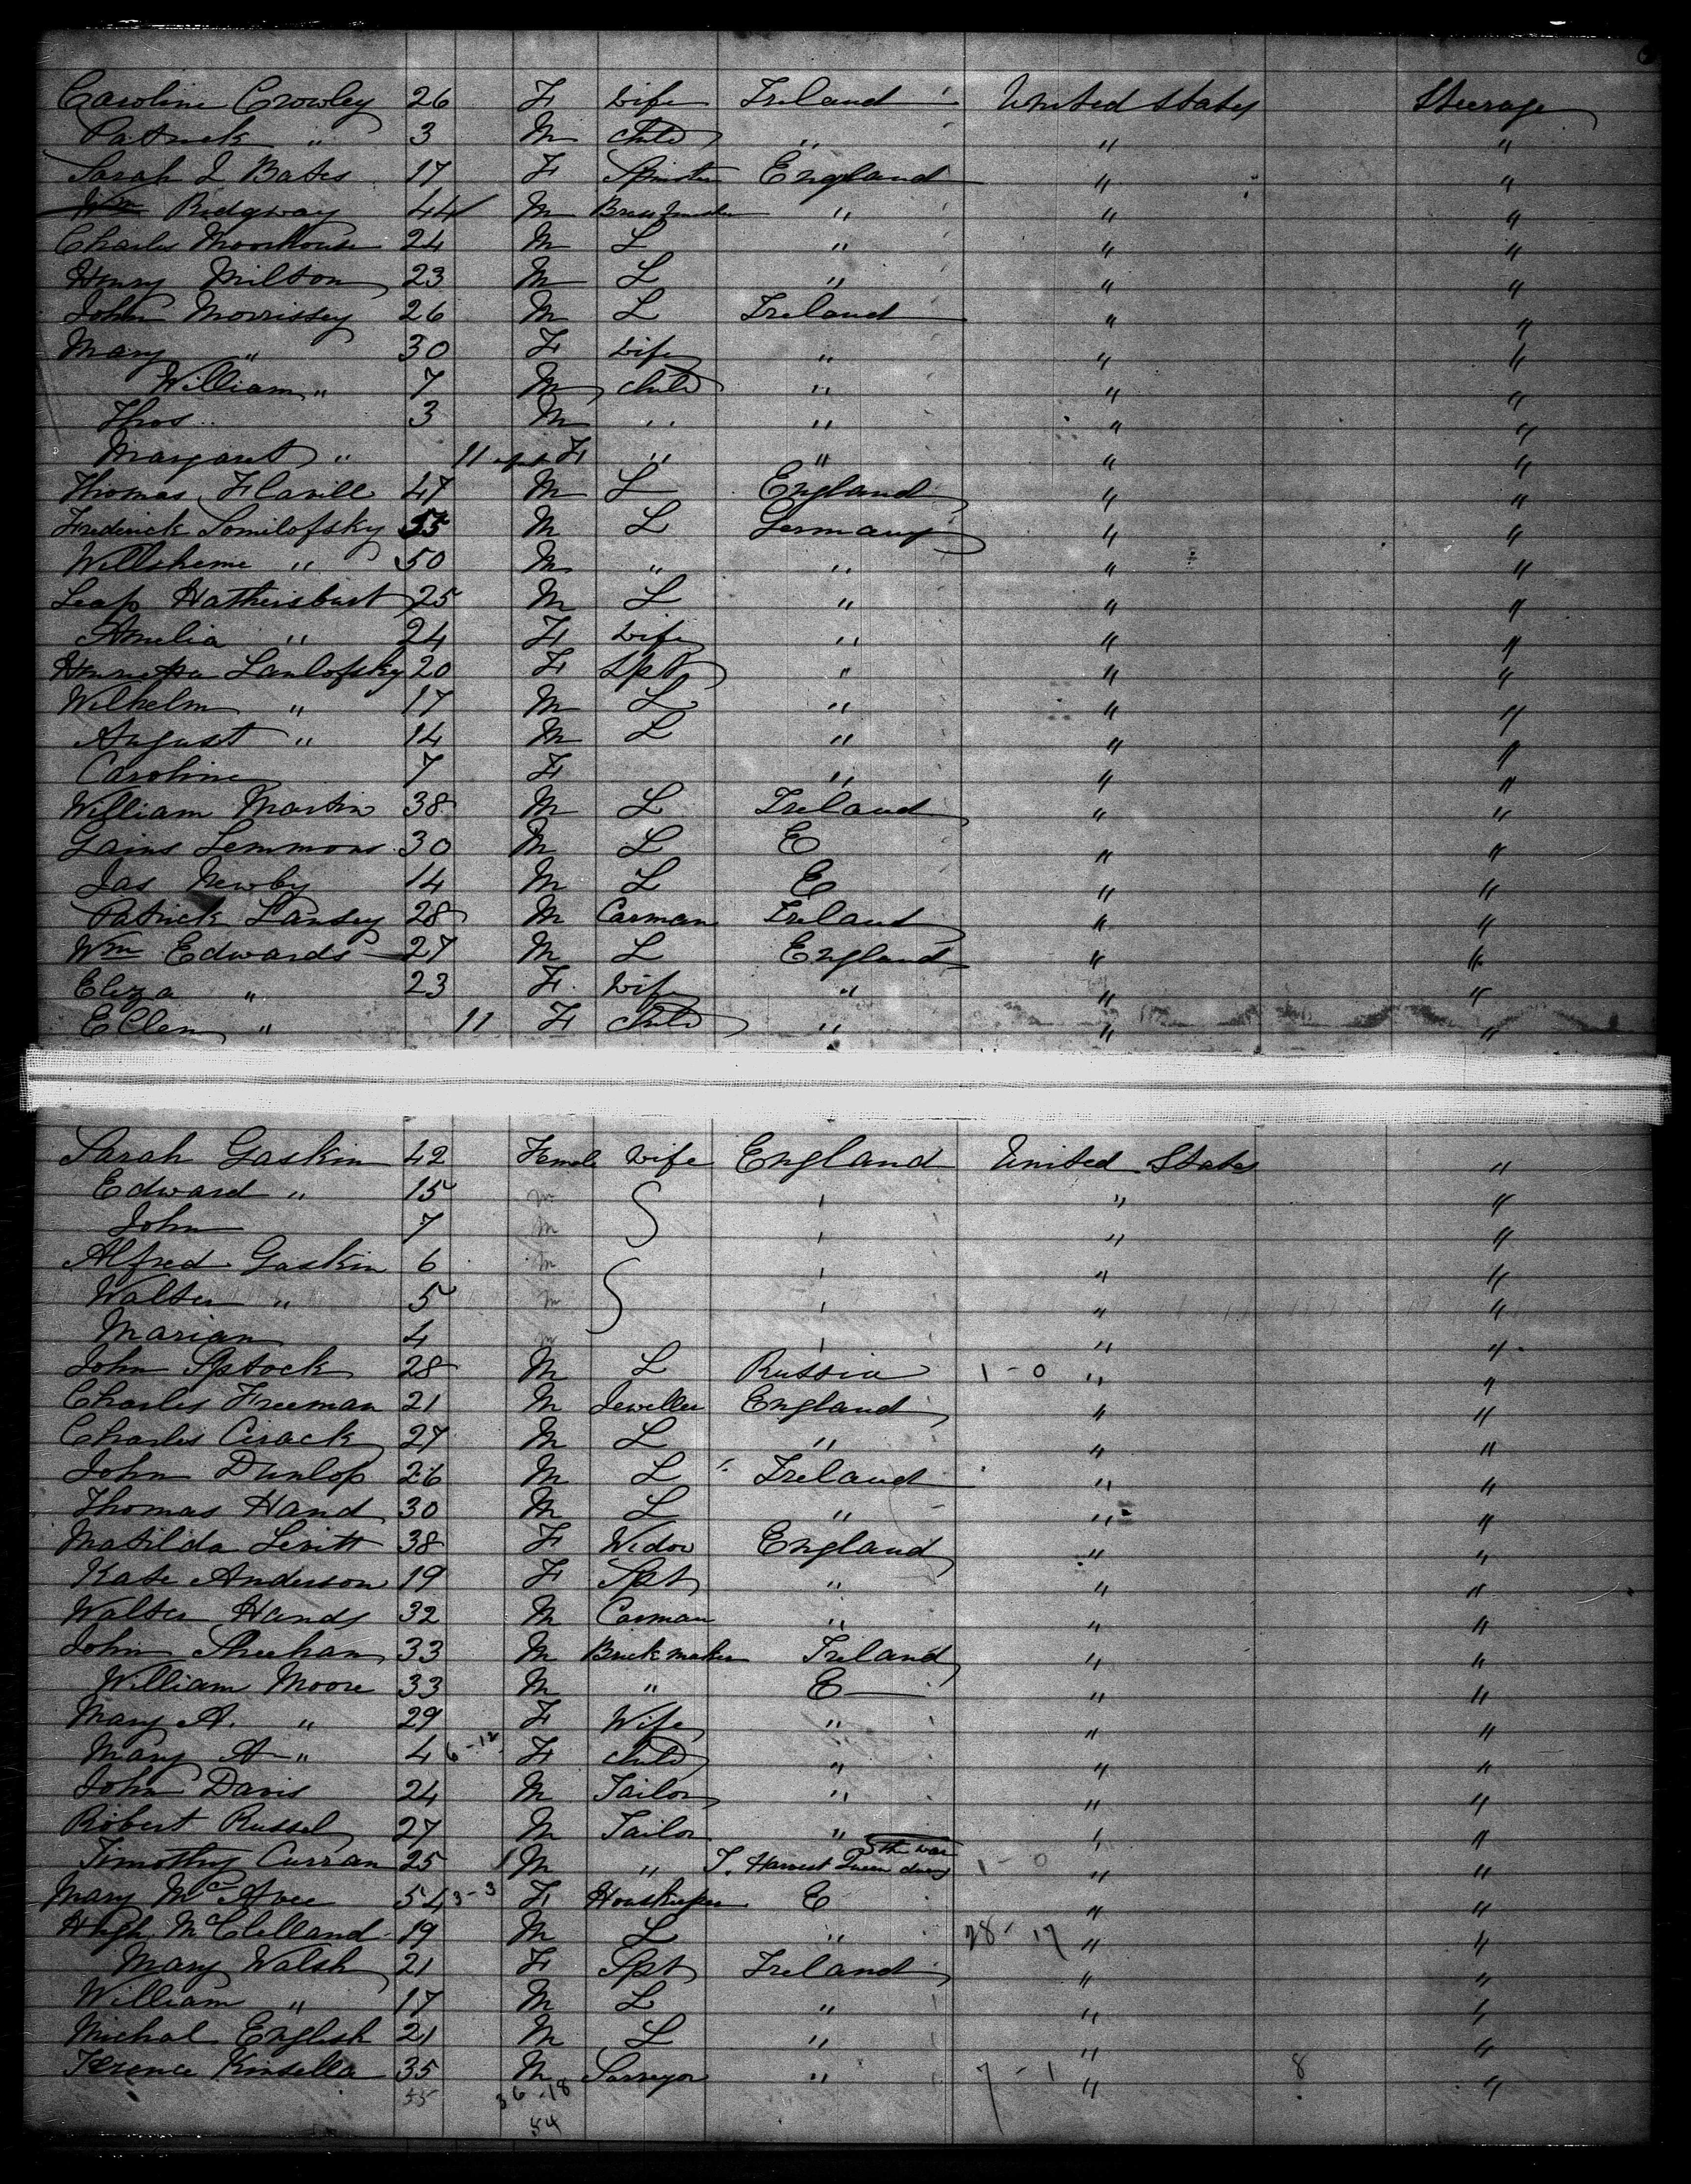 Caroline Crowley 26 F Wife Ireland United States Steerage
Patrick " 3 M Child " " "
Sarah J Bates 17 F Spinster England " "
Wm Ridgway 44 M " " "
Charles Moorhouse 24 M L " " "
Henry Milton 23 M L " " "
John Morrissey 26 M L Ireland " "
Mary " 30 F Wife " " "
William " 7 M Child " " "
Thos " 3 M " " " "
Margaret " 11 F " " " "
Thomas Flavill 47 M L England " "
Frederick Somilofsky M L Germany " "
Willsheme " 50 M " " " "
Leap Hathersburt 25 M L " " "
Amelia " 24 F Wife " " "
Henrietta Lanlofsky 20 F Spt " " "
Wilhelm " 17 M L " " "
August " 14 M L " " "
Caroline 7 F " " "
William Martin 38 M L Ireland " "
Lemmons 30 M L E " "
Jas Newby 14 M L E " "
Patrick Lansey 28 M Carman Ireland " "
Wm Edwards 27 M L England " "
Eliza " 23 F Wife " " "
Ellen " 11 F Child " " "
Sarah Gaskin 42 Female Wife England United States "
Edward " 15 M ' " "
John 7 M ' " "
Alfred Gaskin 6 M ' " "
Walter " 5 M ' " "
Marian 4 M ' " "
John Spstock 28 M L Russia 1-0 " "
Charles Freeman 21 M Jeweller England " "
Charles Cirack 27 M L " " "
John Dunlop 26 M L Ireland " "
Thomas Hand 30 M L " " "
Matilda Levitt 38 F Widow England " "
Kate Anderson 19 F Spt " " "
Walter Hands 32 M Carman " " "
John Sheehan 33 M Brickmaker Ireland " "
William Moore 33 M " E " "
Mary A. " 29 F Wife " " "
Mary A " 4 6-12 F Child " " "
John Davis 24 M Tailor " " "
Robert Russel 27 M Tailor " " "
Timothy Curran 25 M " I. Harvest Queen 1-0 " "
Mary McAvee 54 3-3 F Houskeeper E " "
Hugh McClelland 19 M L " 28-17 " "
Mary Walsh 21 F Spt Ireland " "
William " 17 M L " " "
Michal English 21 M L " " "
Terence Kinsella 35 M Surveyor " 7-1 " 8 "
55 36-18
54